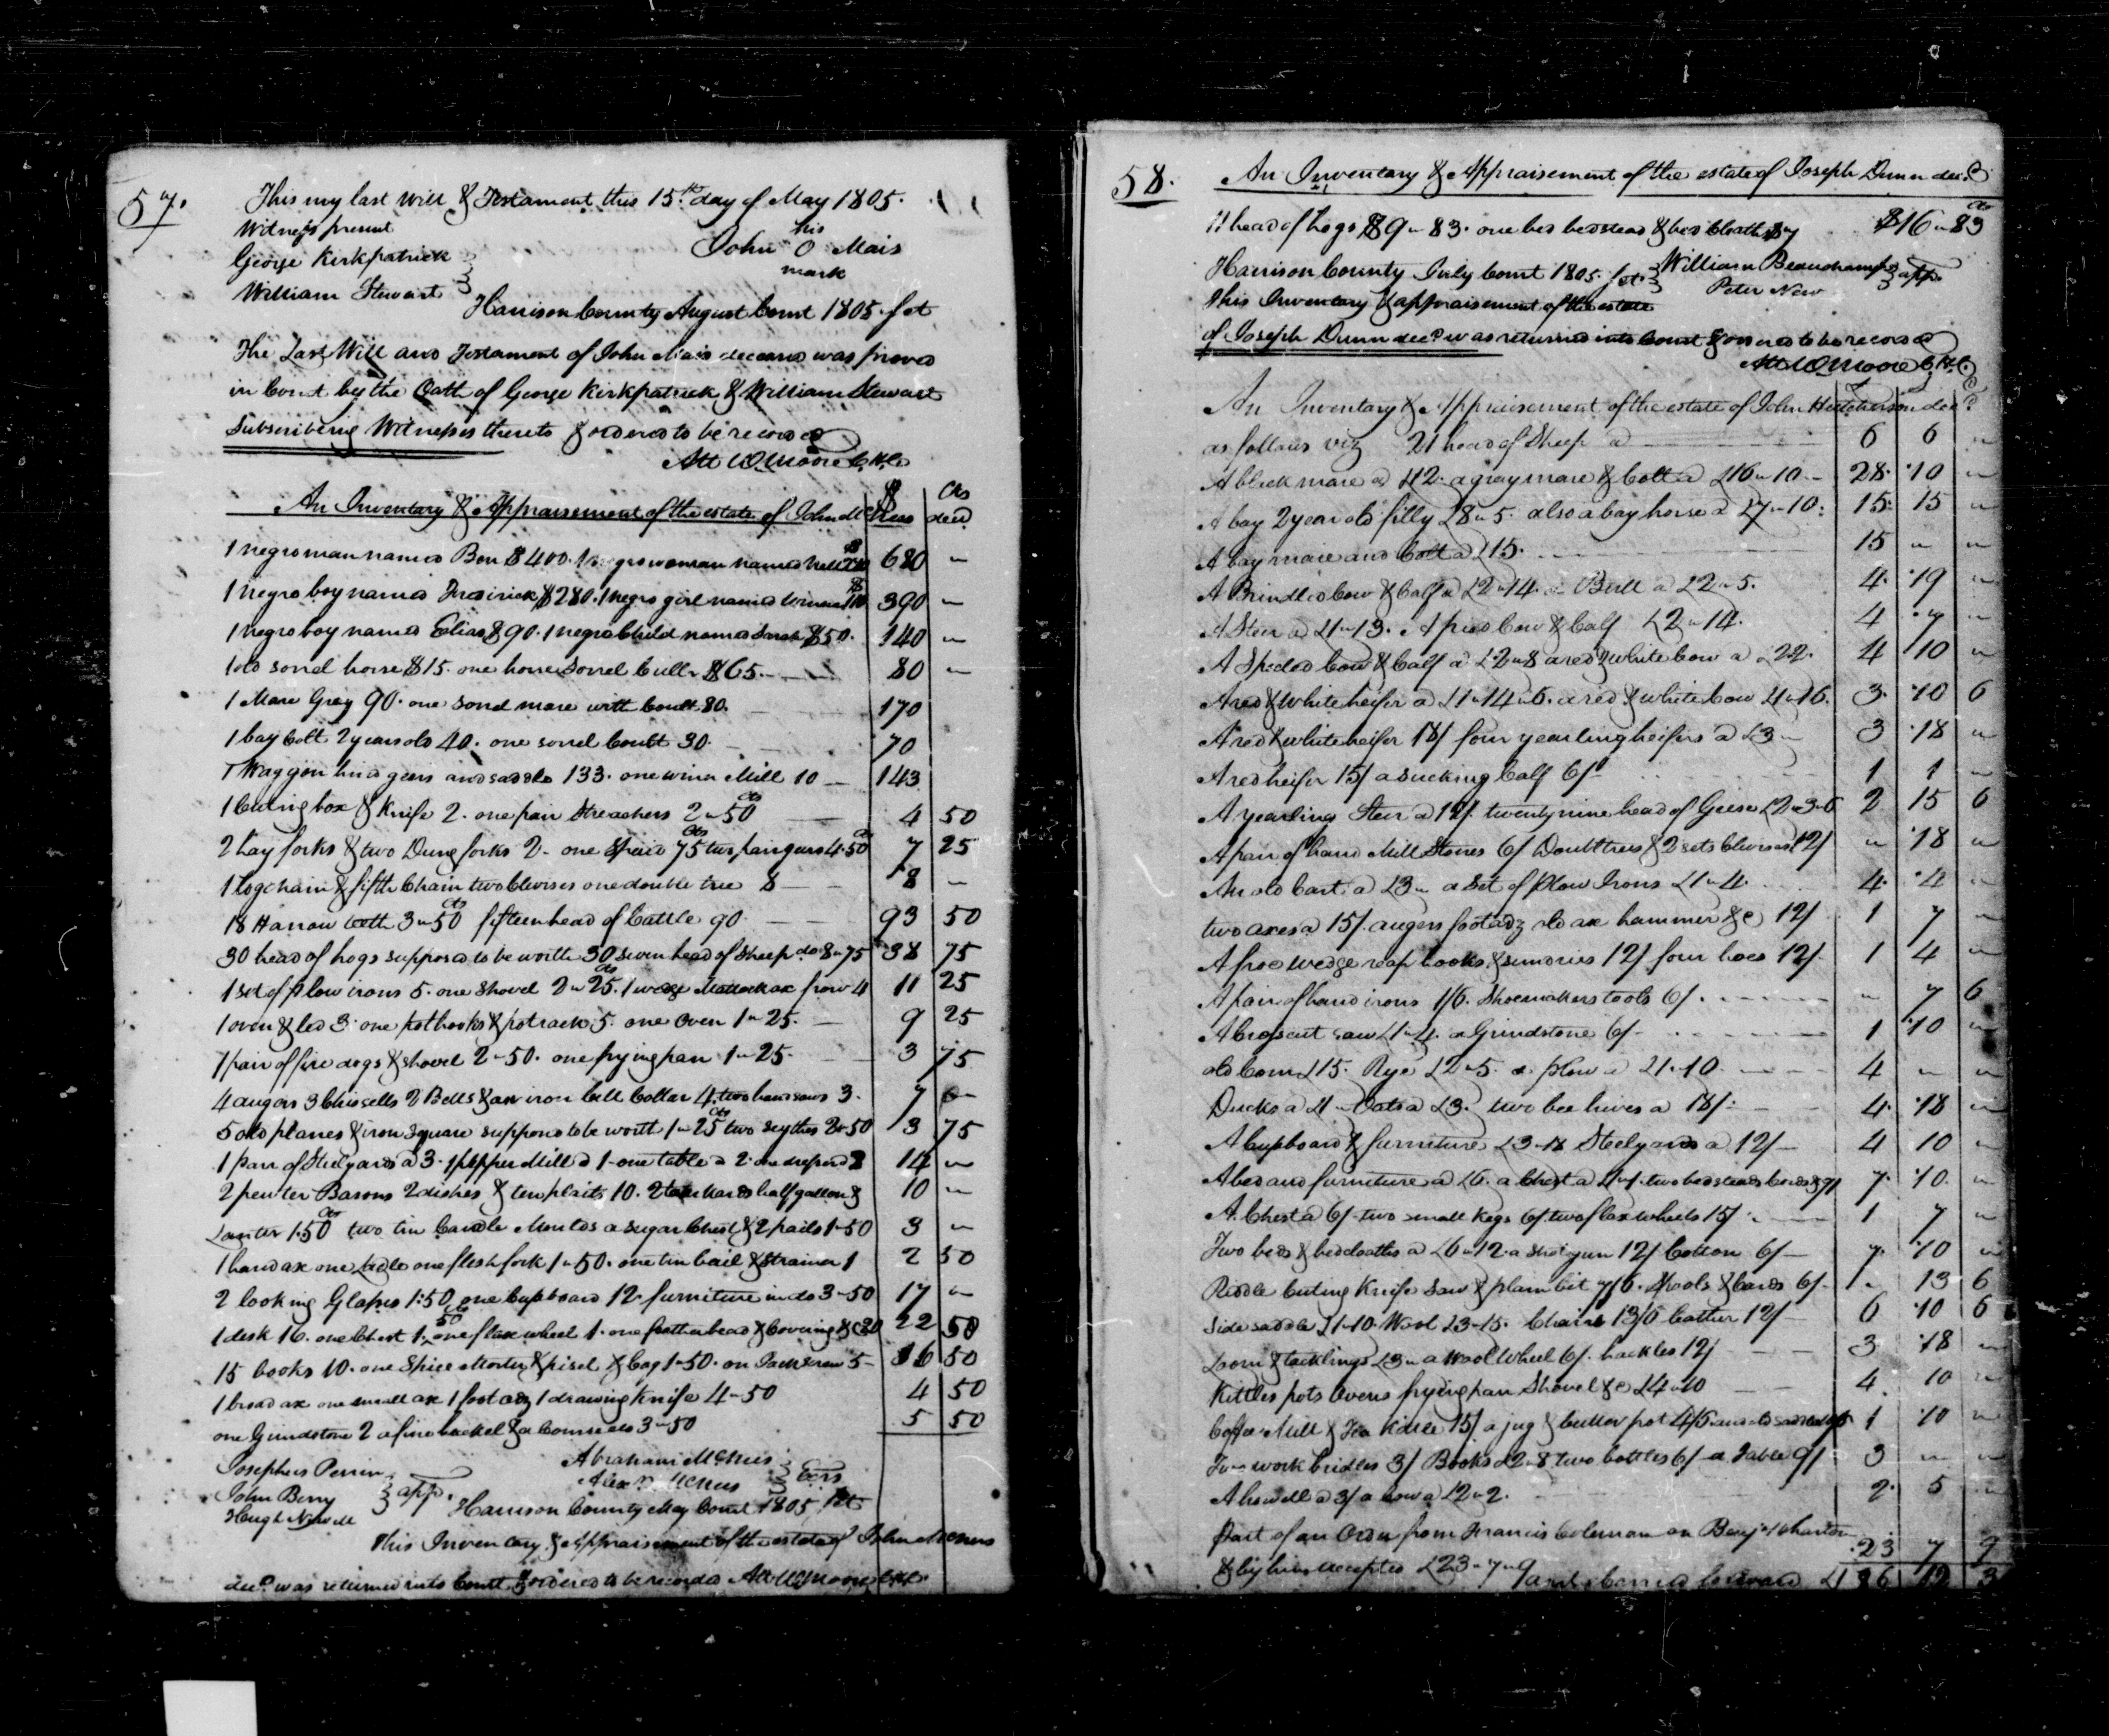 57.
This my last will & Testament this 15th day of May 1805.
Witness present
his
John O Mais
mark
George Kirkpatrick
William Stewart
Harrison County August Court 1805. Sct
The Last Will and Testament of John Mais deceased was proved
in Court by the Oath of George Kirkpatrick & William Stewart
Subscribing Witnesses thereto & ordered to be recorded
Att W. Moore C.H.C.
An Inventory & Appraisement of the estate of John McNees decd $ Cts
1 negro man named Ben $400. 1 negro woman named Nell $280 680 "
1 negro boy named Fredrick $280. 1 negro girl named $110 390 "
1 negro boy named Elias $90. 1 negro Child named Sarah $50. 140 "
1 old sorrel horse $15. one horse sorrel $65. 80 "
1 Mare Grey 90. one sorrel mare with Coult 80. 170
1 bay Colt 2 years old 40. one sorrel Coult 30. 70
1 Waggon hind geers and saddle 133. one winn Mill 10 143
1 Cuting box & Knife 2. one pair Streachers 2"50 cts 4 50
2 hay forks & two Dung forks 2. one Spaid 75 cts two pair gears 4.50 cts 7 25
1 logchain & fifth Chain two Clevises one double tree 8 8 "
18 Harrow teeth 3"50 cts fifteen head of Cattle 90. 93 50
30 head of hogs supposed to be worth 30 seven head of Sheep do 8"75 38 75
1 set of plow irons 5. one Shovel 2"25 cts. 1 wedge Mattock ax frow 4 11 25
1 oven & led 3. one pothooks & potrack 5. one Oven 1"25. 9 25
1 pair of fire dogs & shovel 2"50. one frying pan 1"25. 3 75
4 augers 3 Chissells 2 Bells & an iron bell Collar 4. two hand saws 3. 7 "
5 old planes & iron Square supposed to be worth 1"25 cts two scythes 2"50 3 75
1 pair of Steelyards a 3. 1 pepper Mill a 1. one table a 2. one 8 14 "
2 pewter Basons 2 dishes & ten plaits 10. 2 tankards half gallon & 10 "
1.50 cts two tin Candle Moulds a sugar Chest & 2 pails 1"50 3 "
1 hand ax one Ladle one flesh fork 1"50. one tin bail & strainer 1 2 50
2 looking Glasses 1:50 cts one Cupboard 12. furniture in do 3"50 17 "
1 desk 16. one Chest 1.50 one flax wheel 1. one feather bead & Covering &c 22 50
15 books 10. one Spice Morter & pisel & bag 1"50. on Jack Screw 5 16 50
1 broad ax one small ax 1 foot adz 1 drawing Knife 4"50 4 50
one Grindstone 2 a fine hackel & a Coarse do 3"50 5 50
Josephus Perrin
John Berry
Hugh Newell
app.
Abraham McNees
Alexr McNees
Exrs
Harrison County May Court 1805 Sct
This Inventory & Appraisement of the estate of John McNees
decd was returned into Court & ordered to be recorded Att W. Moore C.H.C.
58.
An Inventory & Appraisement of the estate of Joseph Dunn decd
11 head of hogs $9"83. one bed bedstead & bed Cloaths $7 $16"83 cts
Harrison County July Court 1805. Sct William Beauchamp
Peter New app.
This Inventory & appraisement of the estate
of Joseph Dunn decd was returned into Court & ordered to be recorded
Att W. Moore C.H.C.
An Inventory & Appraisement of the estate of John Hutcherson decd
as follows viz 21 head of Sheep a 6 6 "
A black mare a £12. a gray mare & Colt a £16"10 28 10 "
A bay 2 year old filly £8"5. also a bay horse a £7"10: 15 15 "
A bay mare and Colt a £15. 15 " "
A Brindled Cow & Calf a £2"14. a Bull a £2"5. 4 19 "
A Steer a £1"13. A pied Cow & Calf £2"14. 4 7 "
A Specled Cow & Calf a £2"8 a red & white Cow a £22. 4 10 "
A red & White heifer a £1"14"6. a red & white Cow £1"16. 3 10 6
A red & white heifer 18/ four yearling heifers a £3" 3 18 "
A red heifer 15/ a sucking Calf 6/ 1 1 "
A yearling Steer a 12/. twenty nine head of Geese £2"3"6 2 15 6
A pair of hand Mill Stones 6/ Doubltrees & 2 sets Clevises 12/ " 18 "
An old Cart a £3" a Set of Plow Irons £1"4. 4 4 "
two axes a 15/. augers foot adz old ax hammer &c 12/ 1 7 "
A froe wedge reap hooks & sundries 12/ four hoes 12/. 1 4 "
A pair of hand irons 1/6. Shoemakers tools 6/. " 7 6
A Crosscut saw £1"4. a Grindstone 6/. 1 10 "
old Corn £15. Rye £2"5. a plow a £1"10. 4 " "
Ducks a £1" Oats a £3. two bee hives a 18/: 4 18 "
A Cupboard & furniture £3"18 Steelyards a 12/ 4 10 "
A bed and furniture a £6. a Chest a £1"1. two bedsteads Cords & 9/ 7 10 "
A Chest a 6/. two small Kegs 6/. two flax wheels 15/ 1 7 "
Two beds & bedcloaths a £6"12. a shot gun 12/ Cotton 6/ 7 10 "
Riddle Cuting Knife Saw & plain bit 7/6. Spools & Cards 6/. " 13 6
Side saddle £1"10. Wool £3"15. Chairs 13/6 Leather 12/ 6 10 6
Loom & tacklings £3" a Wool Wheel 6/. hackles 12/ 3 18 "
Kittles pots Ovens frying pan Shovel &c £4"10 4 10 "
Coffee Mill & Tea Kittle 15/ a jug & butter pot 4/6 and old saddle 1 10 "
Two work bridles 3/ Books £2"8 two bottles 6/ a Table 9/ 3 " "
A a 3/ a Cow a £2"2. 2 5 "
Part of an Order from Francis Coleman on Benja Wharton
& by him accepted £23"7"9 23 7 9
carried forward £1 6 12 3